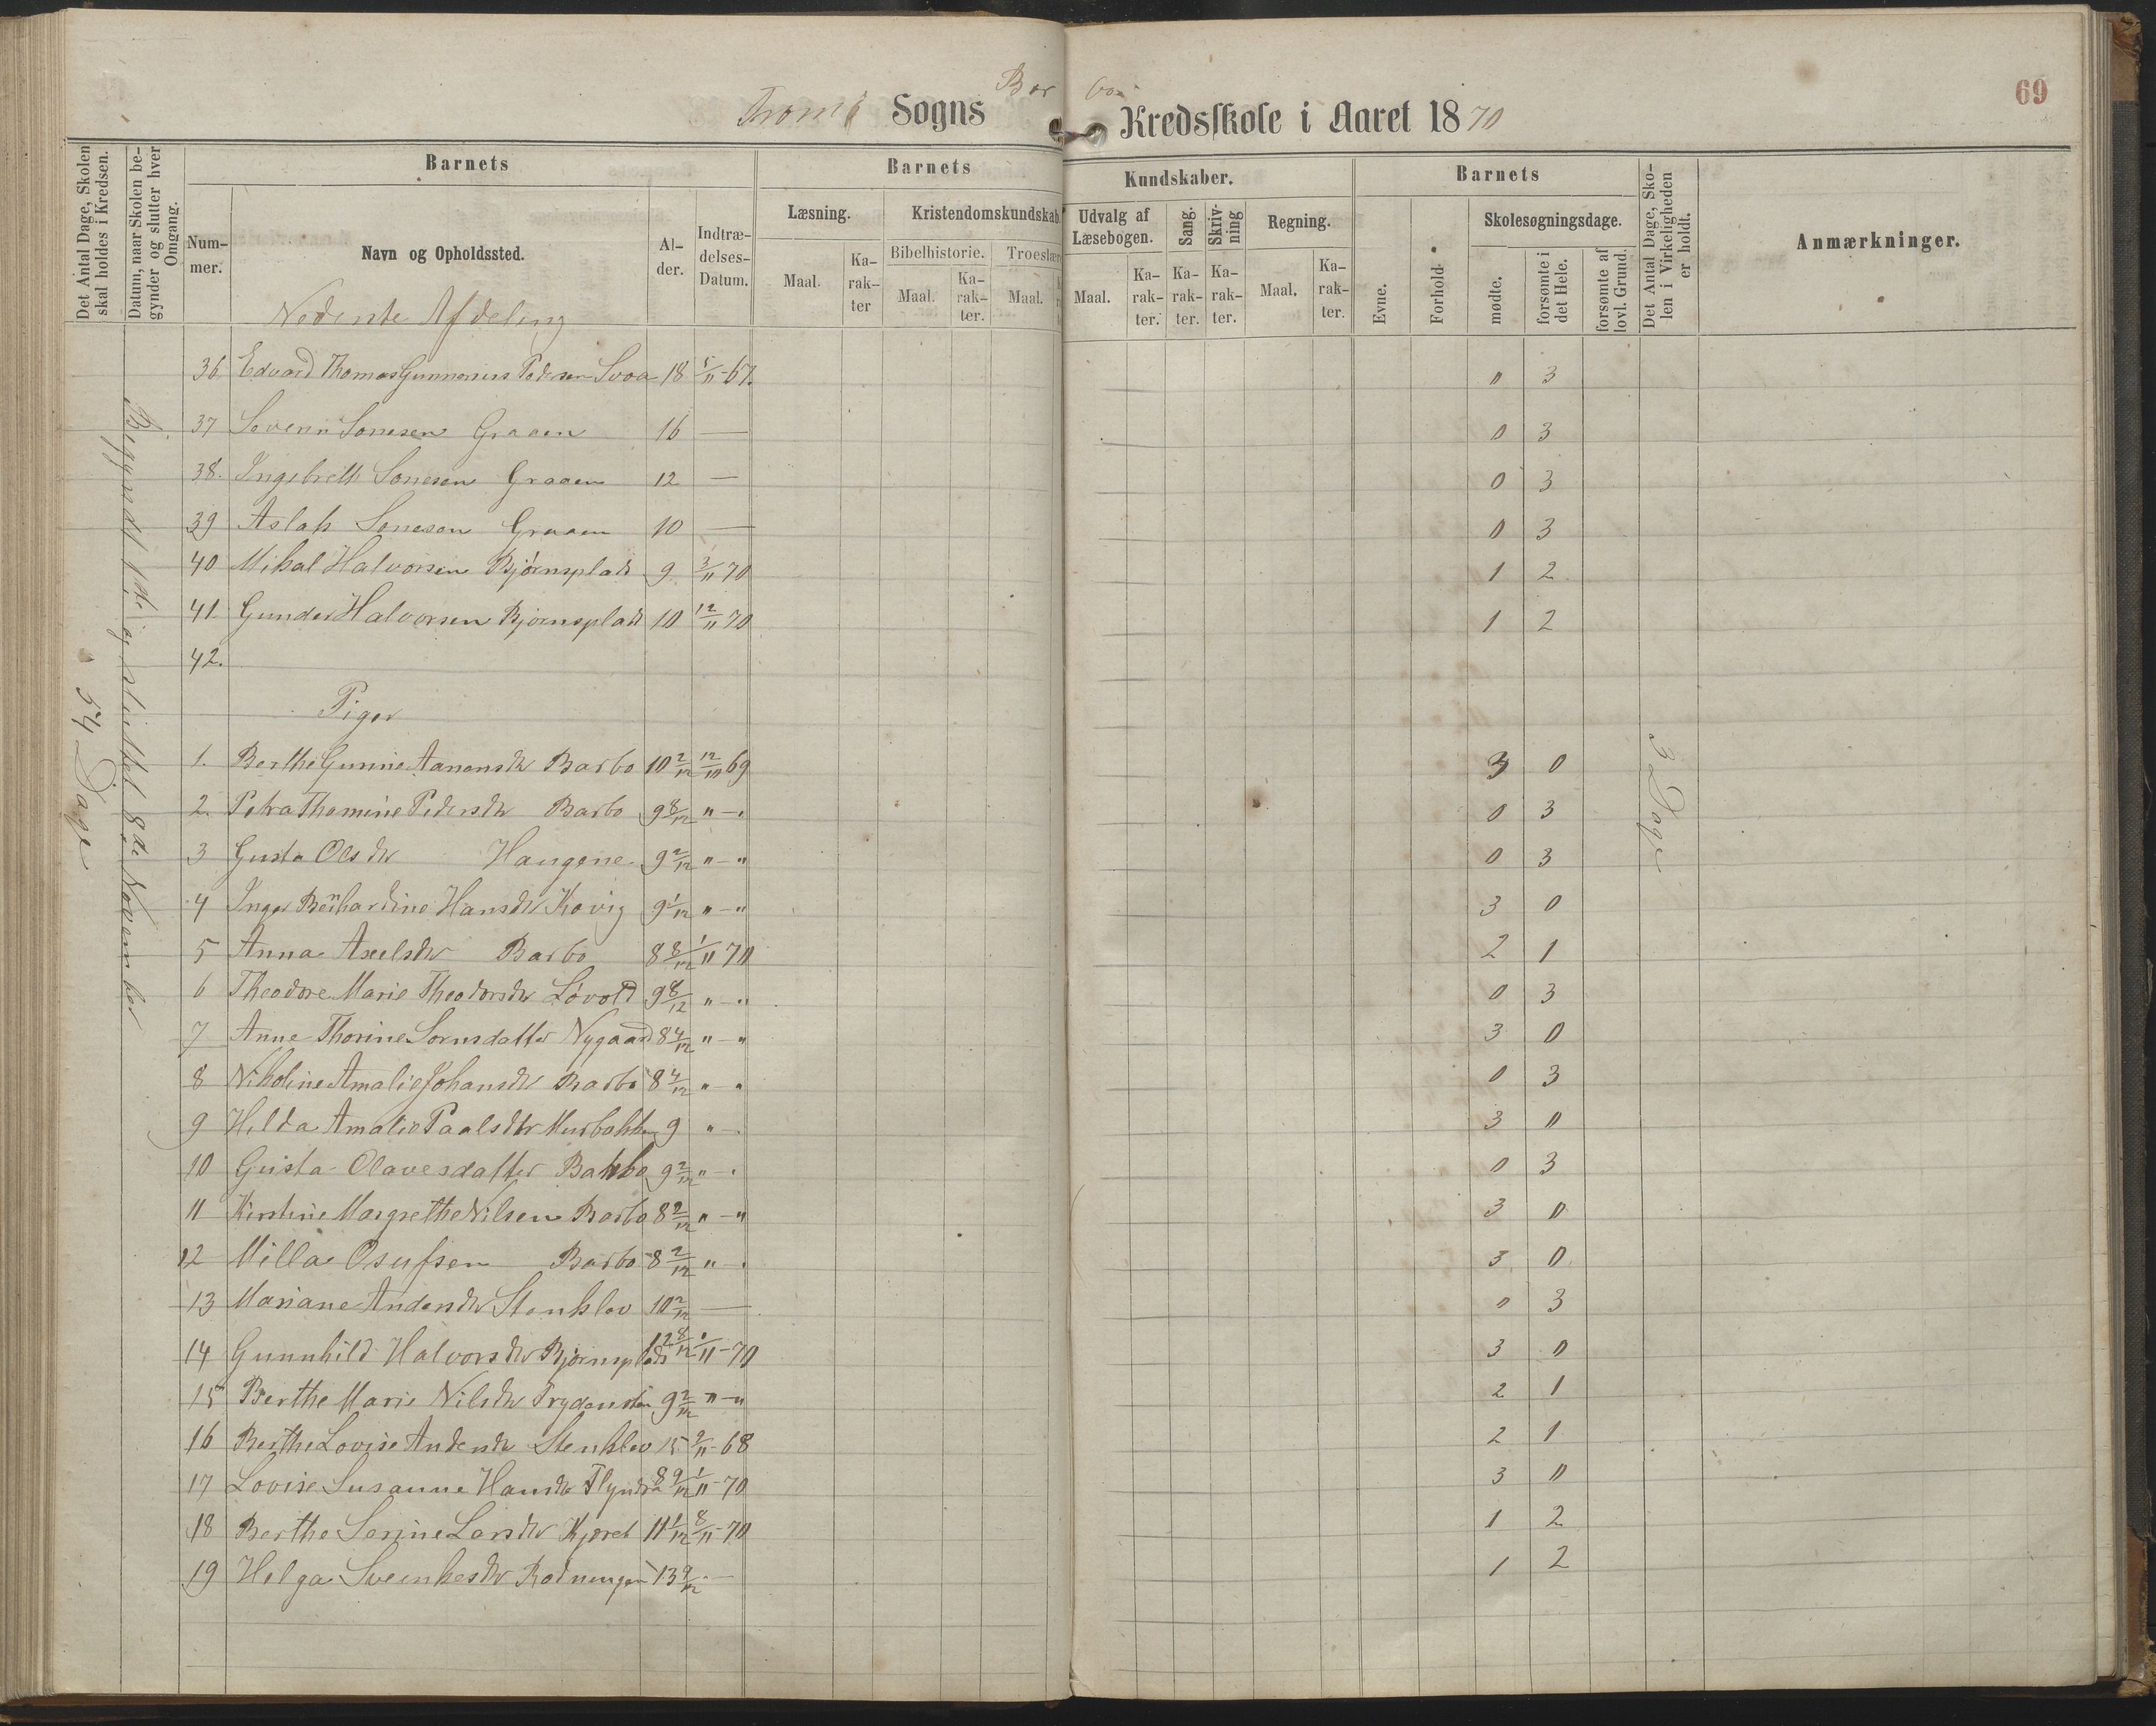 69
Tromø Sogns Bar bo Kredsskole i Aaret 1870
Det Antal Dage, Skolen skal holdes i Kredsen.
Datum, naar Skolen begynder og slutter hver Omgang.
Barnets
Nummer.
Navn og Opholdssted.
Alder.
Indtrædelses-Datum.
Barnets Kundskaber.
Læsning. Maal. Karakter
Kristendomskundskab.
Bibelhistorie. Maal. Karakter.
Troeslære Maal.
Udvalg af Læsebogen. Maal. Karakter.
Sang. Karakter.
Skrivning Karakter.
Regning. Maal. Karakter.
Barnets
Evne.
Forhold.
Skolesøgningsdage.
mødte.
forsømte i det Hele.
forsømte af lovl. Grund.
Det Antal Dage, Skolen i Virkeligheden er holdt.
Anmærkninger.
54 Dage
Begyndt 1de og sluttet 8de November
3 Dage
Nederste Afdeling
36 Edvard Thomas Gunnarius Pedersen Svoa 18 5/11-67. 0 3
37 Severin Sørensen Graaen 16 — 0 3
38. Ingebreth Sørensen Graaen 12 — 0 3
39 Aslak Sørensen Graaen 10 — 0 3
40 Mikal Halvorsen Bjørnsplads 9 3/11 70 1 2
41. Gunder Halvorsen Bjørnsplads 10 12/11 70 1 2
42.
Piger
1. Berthe Gurine Aanensdtr Barbo 10 2/12 12/10 69 3 0
2. Petra Thomine Pedersdtr Barbo 9 8/12 " — " 0 3
3 Gusta Olsdtr Haugene 9 2/12 " — " 0 3
4 Inger Bernhardine Hansdtr Kovig 9 1/12 " — " 3 0
5 Anna Axelsdtr Barbo 8 8/12 1/11 70 2 1
6 Theodore Marie Theodorsdtr Løvold 9 8/12 " — " 0 3
7 Anne Thorine Sørnsdatter Nygaard 8 4/12 " — " 3 0
8 Nikoline Amalie Johansdtr Barbo 8 4/12 " — " 0 3
9 Hilda Amalie Paalsdtr Murbakken 9 " — 3 0
10 Gusta Olavesdatter Bakbo 9 2/12 " — " 0 3
11 Kirstine Margrethe Nilsen Barbo 8 9/12 " — " 3 0
12 Milla Osufsen Barbo 8 2/12 " — " 3 0
13 Mariane Andersdtr Stenklev 10 2/12 — 0 3
14 Gunnhild Halvorsdtr Bjørnsplads 12 8/12 1/11-70 3 0
15 Berthe Marie Nilsdtr 9 2/12 " — " 2 1
16 Berthe Lovise Andersdtr Stenklev 15 2/11-68 2 1
17 Lovise Susanne Hansdtr Flyndra 8 9/12 1/11-70 3 0
18 Berthe Serine Larsdtr Kjæret 11 1/12 8/11-70 1 2
19 Helga Sveinkesdtr Rødningen 13 9/12 — 1 2